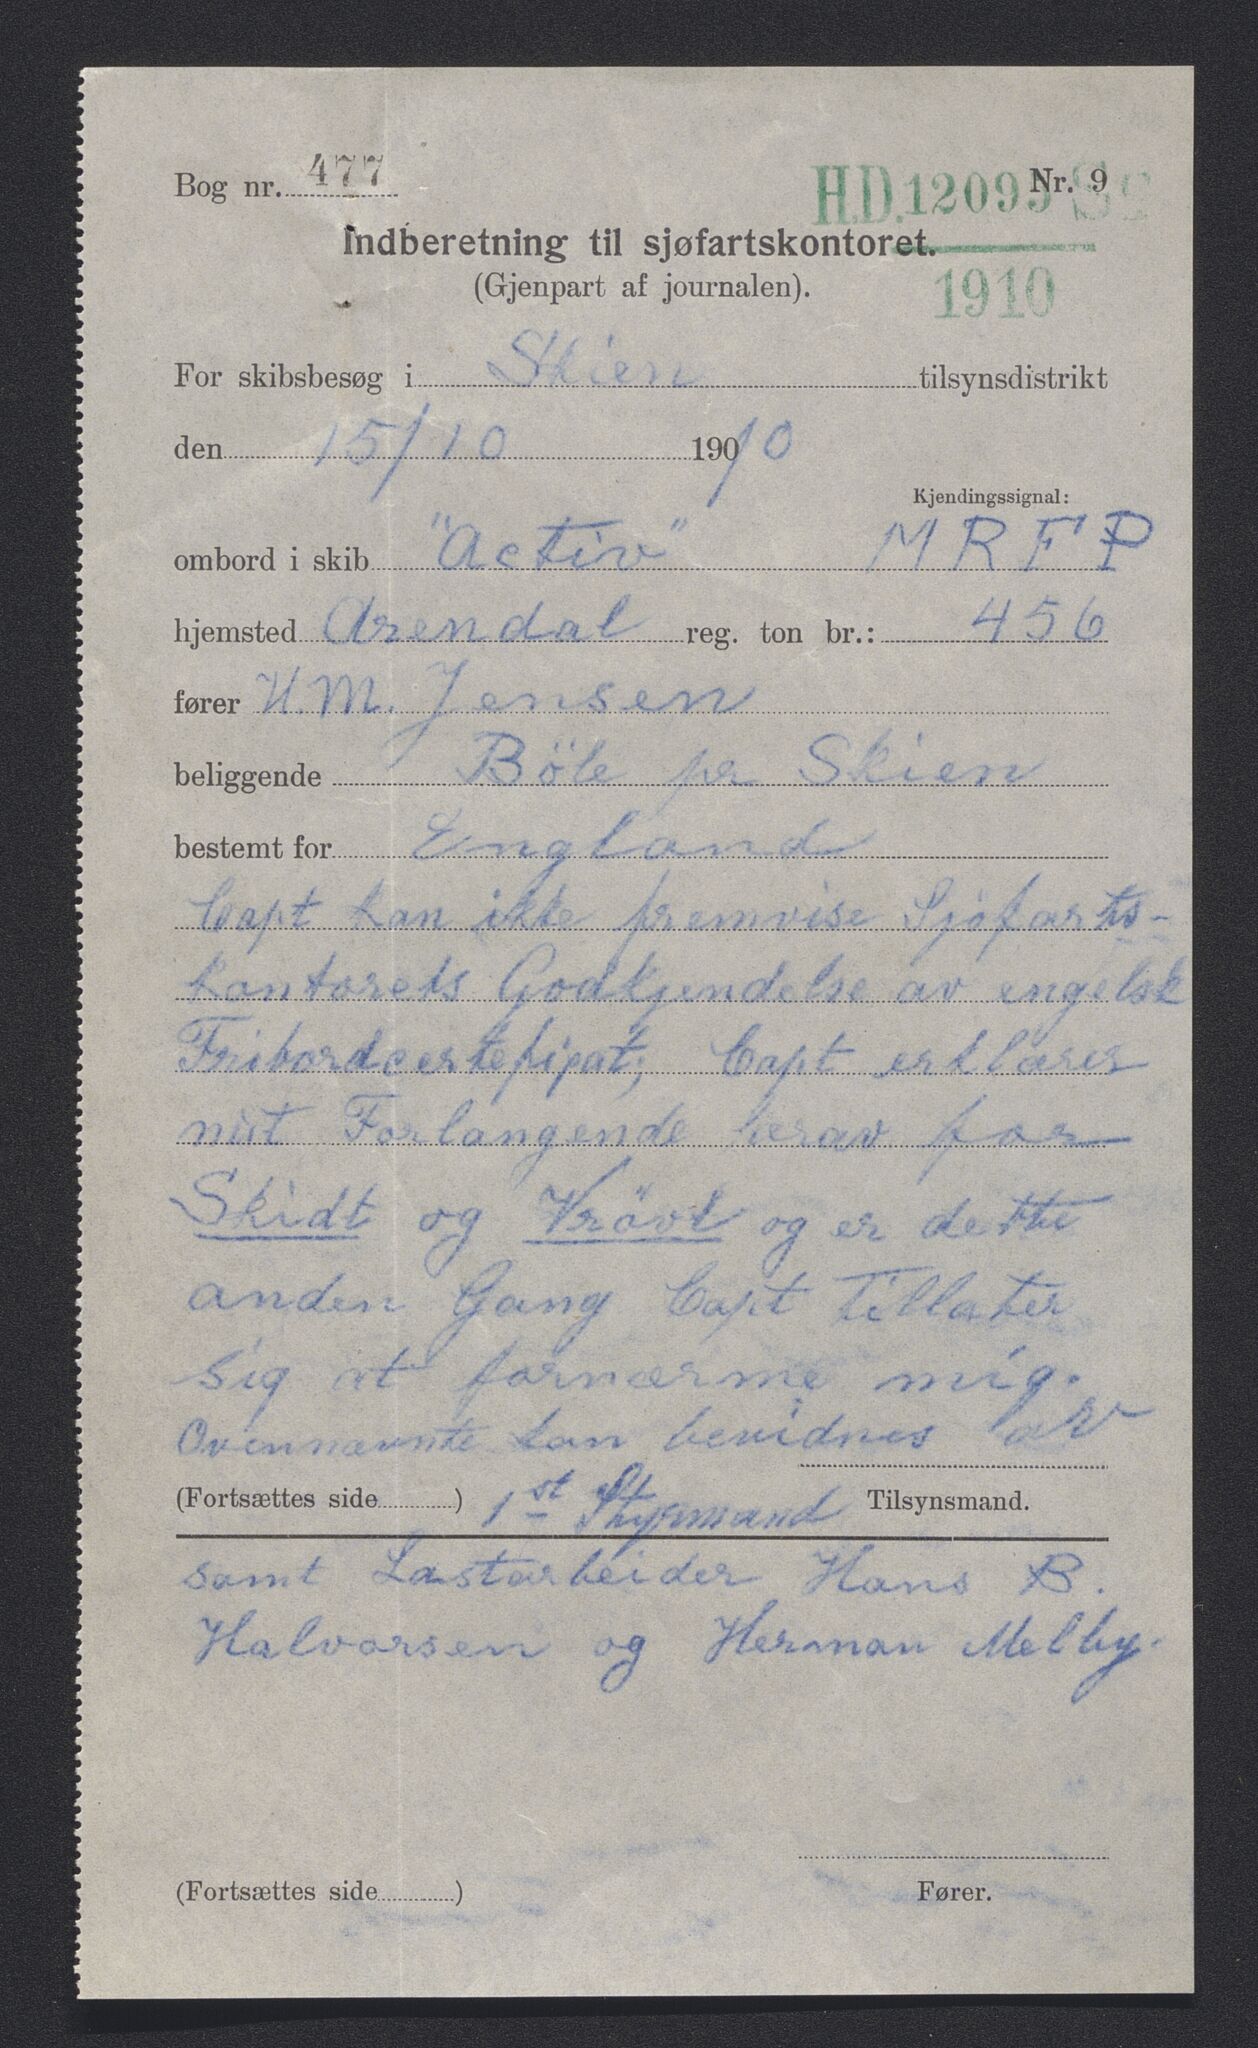 Bog nr. 477 Nr. 9
H.D. 12095 Ss
1910
Indberetning til sjøfartskontoret.
(Gjenpart af journalen).
For skibsbesøg i Skien tilsynsdistrikt
den 15/10 190/0
Kjendingssignal:
ombord i skib "Activ" M R F P
hjemsted Arendal reg. ton br.: 456
fører H. M. Jensen
beliggende Böle pr Skien
bestemt for England
Capt kan ikke fremvise Sjöfarts-
kontorets Godkjendelse av engelsk
Fribordcertefipat; Capt erklærer
mit Forlangende herav for
Skidt og Vrövl og er dette
anden Gang Capt tillater
sig at fornærme mig.
Ovennævnte kan bevidnes av
(Fortsættes side ) 1st Styrmand Tilsynsmand.
samt Lastarbeider Hans B.
Halvorsen og Herman Melby.
(Fortsættes side ) Fører.